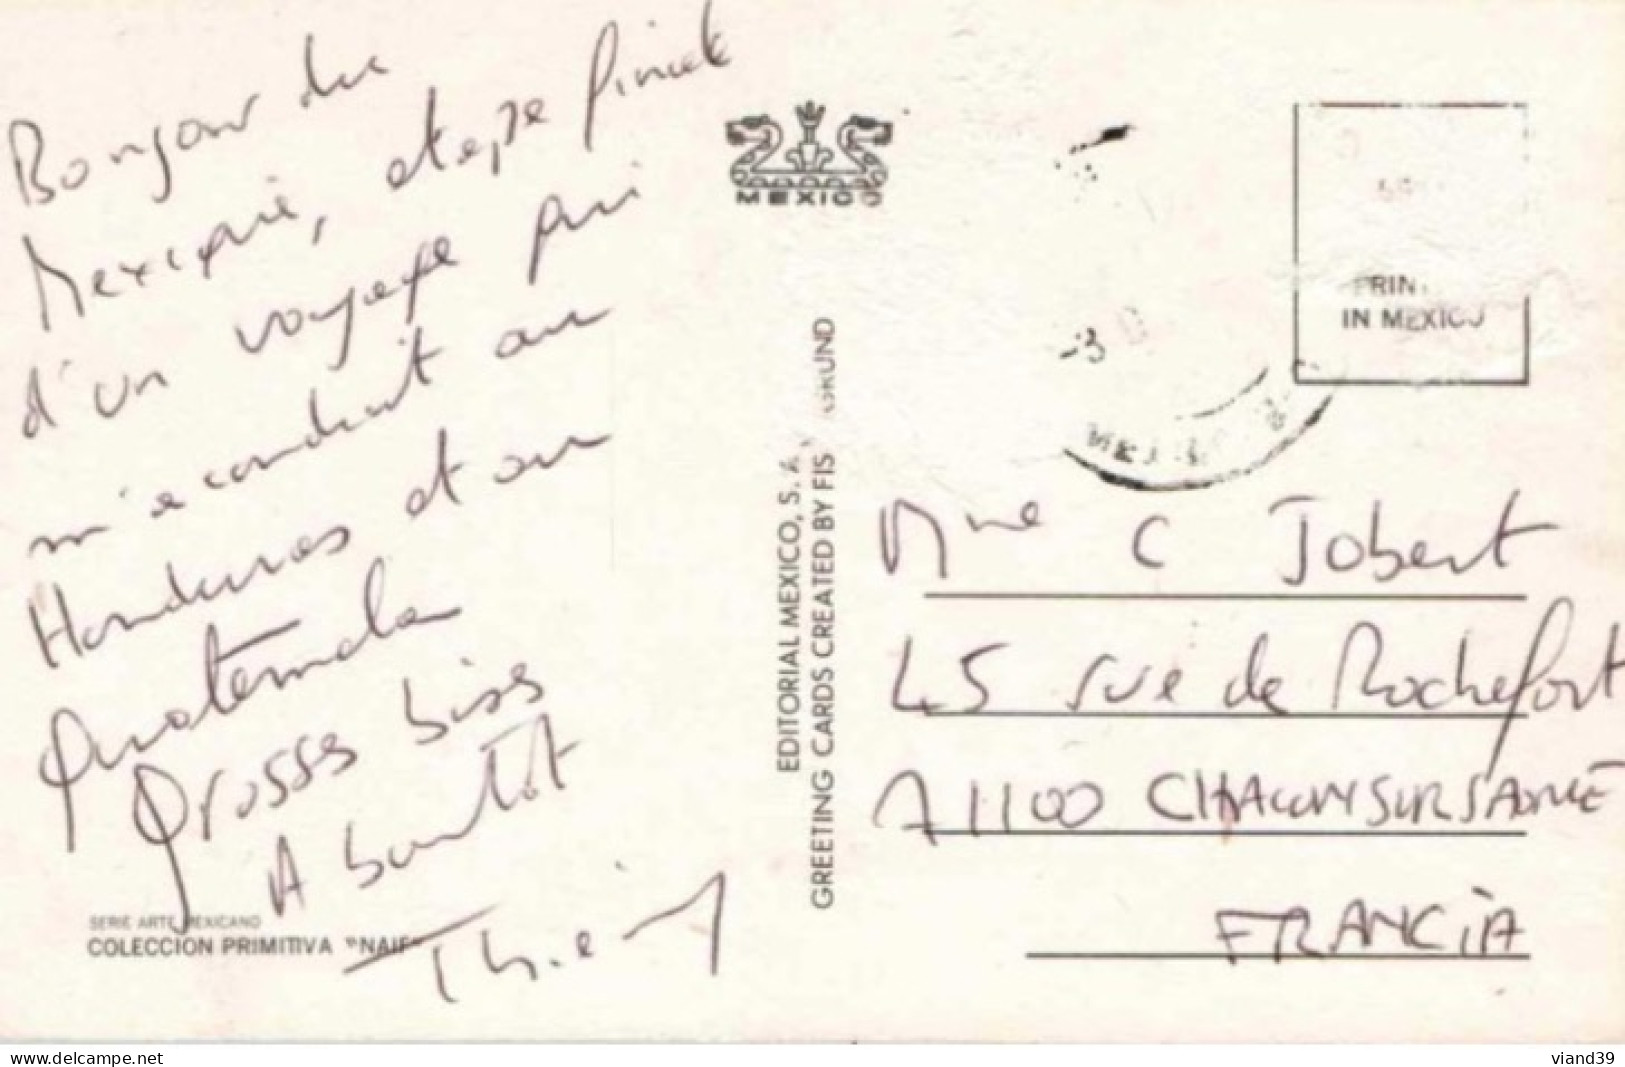 Bonjour du
Mexique, étape finale
d'un voyage qui
m'a conduit au
Honduras et au
Guatemala
Grosses bises
A bientôt
Thierry
SERIE ARTE MEXICANO
COLECCION PRIMITIVA "NAIF"
MEXICO
EDITORIAL MEXICO, S. A.
GREETING CARDS CREATED BY FIS
IN MEXICO
Mme C Jobert
45 rue de Rochefort
71100 CHALON SUR SAONE
FRANCIA
www.delcampe.net
viand39